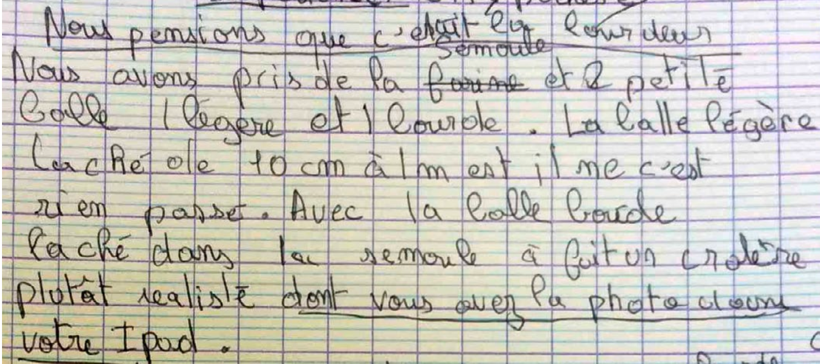 Nous pensions que c'etait la lourdeur
semoule
Nous avons pris de la farine et 2 petite
balle 1 légère et 1 lourde. La balle légère
laché de 10 cm à 1m est il ne c'est
rien passé. Avec la balle lourde
laché dans la semoule à fait un cratère
plutôt realiste dont vous avez la photo dans
votre Ipad.